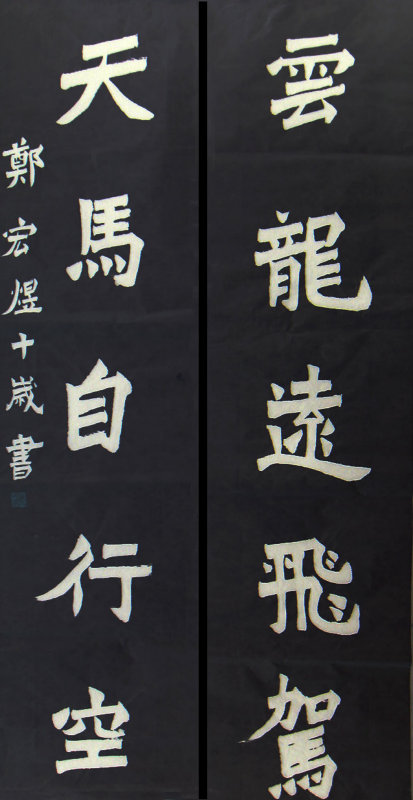 雲龍遠飛駕
天馬自行空
鄭宏煜十歲書